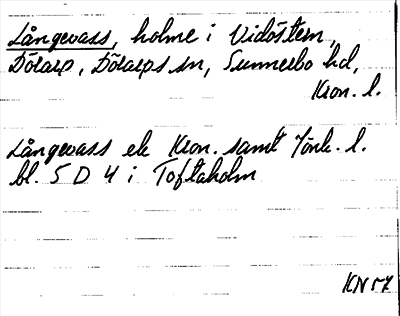 Långevass, holme i Vidöstern,
Dörarp, Dörarps sn, Sunnerbo hd,
Kron. l.
Långevass ek Kron. samt Jönk. l.
bl. 5 D 4 i Toftaholm
KN 57